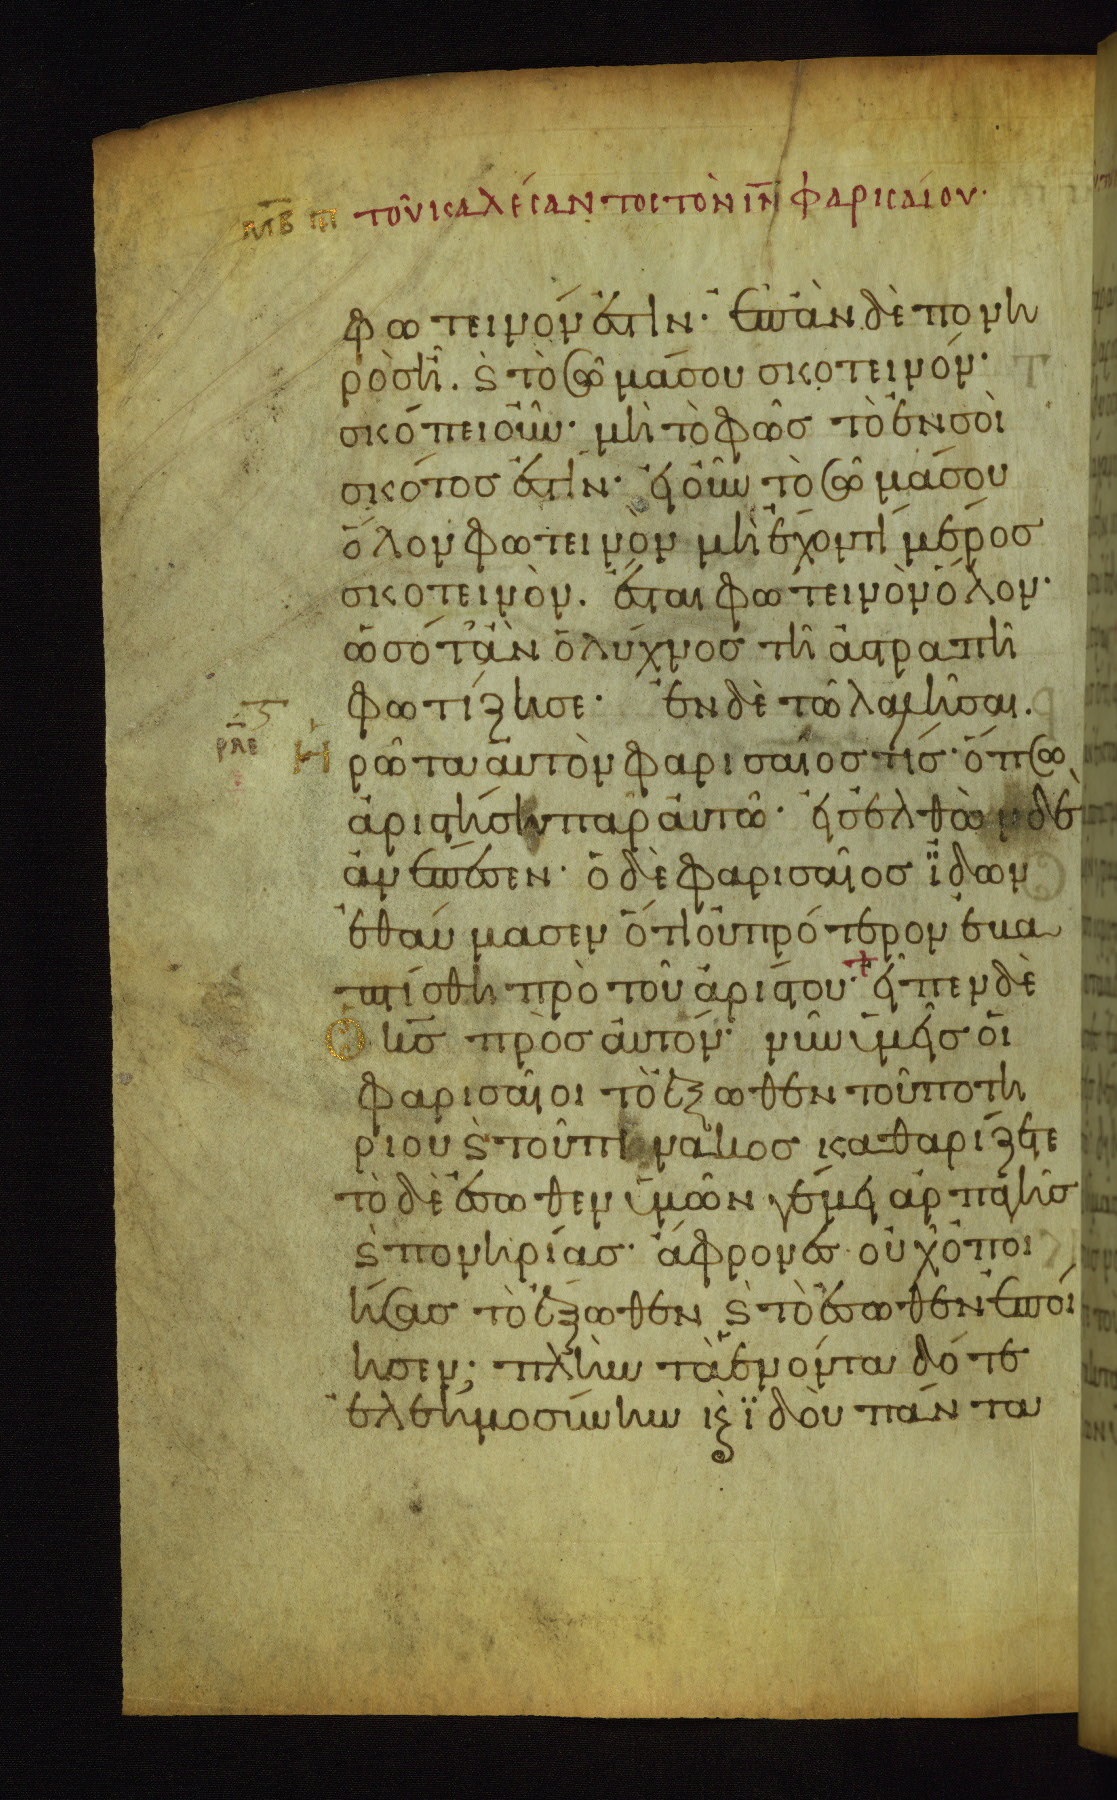 μβ π τοῦ καλέσαντος τὸν ιν φαρισαίου·
φωτεινόν ἐστιν· ἐπὰν δὲ πονη
ρὸς ἦ. ϗ τὸ σῶμά σου σκοτεινόν·
σκόπει οὖν· μὴ τὸ φῶς τὸ ἐν σοὶ
σκότος ἐστὶν· εἰ οὖν τὸ σῶμά σου
ὅλον φωτεινὸν μὴ ἔχον τὶ μέρος
σκοτεινὸν. ἔσται φωτεινὸν ὅλον·
ὡς ὅταν ὁ λύχνος τῆ ἀστραπῆ
φωτίζη σε· ἐν δὲ τῶ λαλῆσαι.
ρλε ἠρώτα αὐτὸν φαρισαῖος τίς· ὅπως
ἀριστήση παρ αὐτῶ· εἰσελθὼν δὲ
ἀνέπεσεν· ὁ δὲ φαρισαῖος ἰδων
ἐθαύμασεν ὅτι οὐ πρότερον ἐβα
πτίσθη πρὸ τοῦ ἀρίστου· εἶπεν δὲ
ὁ ις πρὸς αὐτόν· νῦν ὑμεῖς οἱ
φαρισαῖοι τὸ ἔξωθεν τοῦ ποτη
ριου ϗ τοῦ πίνακος καθαρίζετε
τὸ δὲ ἔσωθεν ὑμῶν γέμει ἁρπαγῆς
ϗ πονηρίας· ἄφρονες οὐχ ὁ ποι
ήσας τὸ ἔξωθεν ϗ τὸ ἔσωθεν ἐποί
ησεν; πλὴν τὰ ἐνόντα δότε
ἐλεημοσύνην ϗ ἰδοὺ πάντα